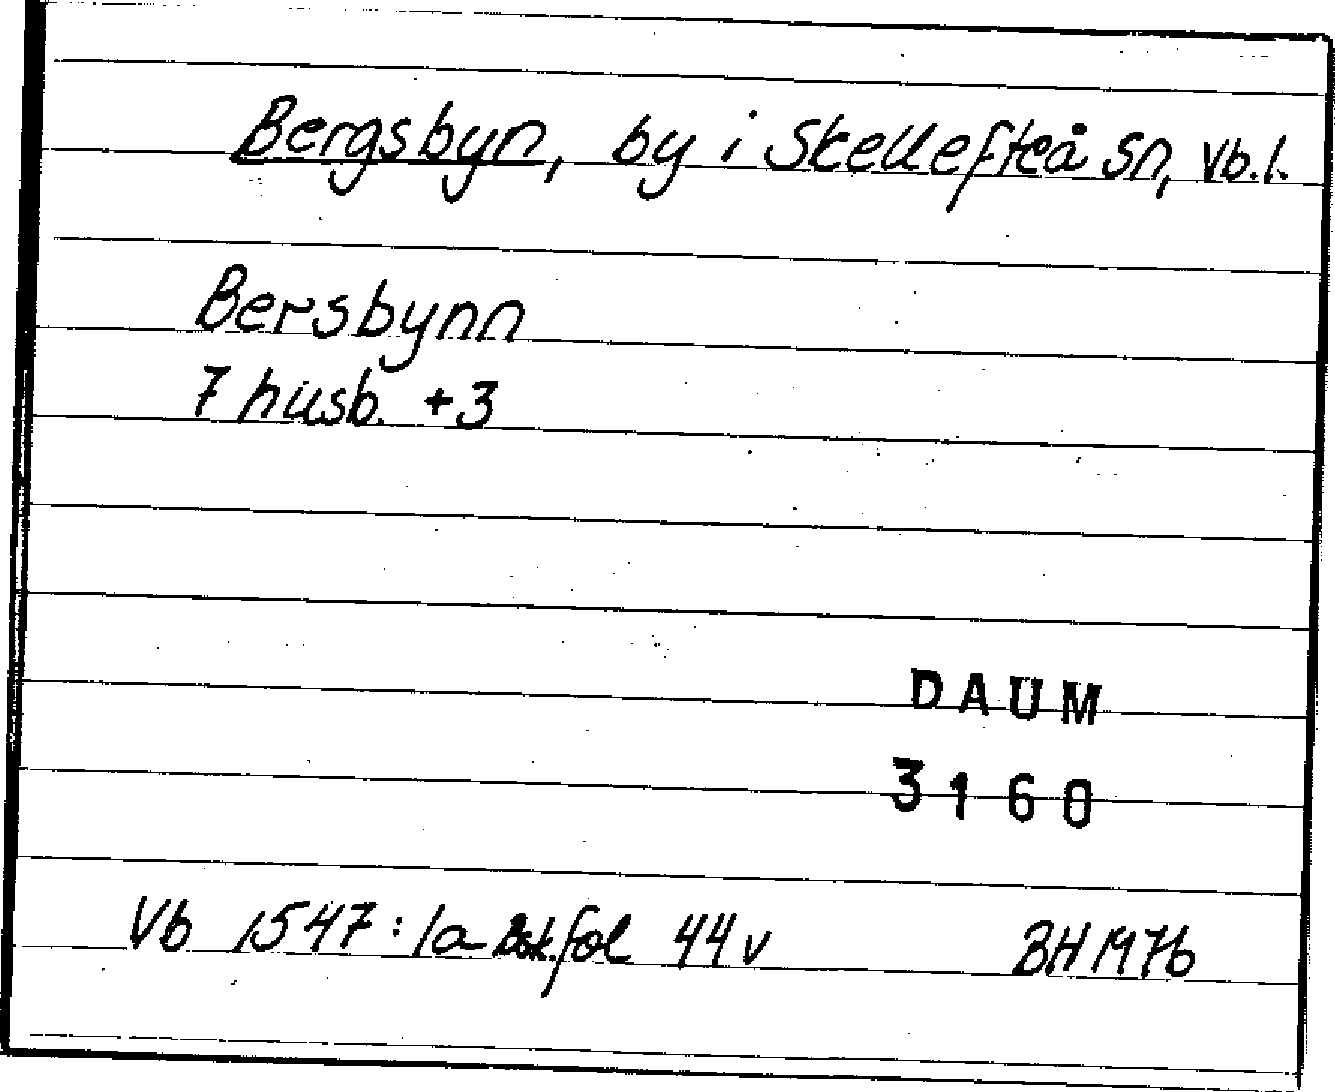 Bergsbyn, by i Skellefteå sn, Vb.l.
Bersbynn
7 husb. +3
DAUM
3160
Vb 1547:1a Bsk.fol 44v BH 1976